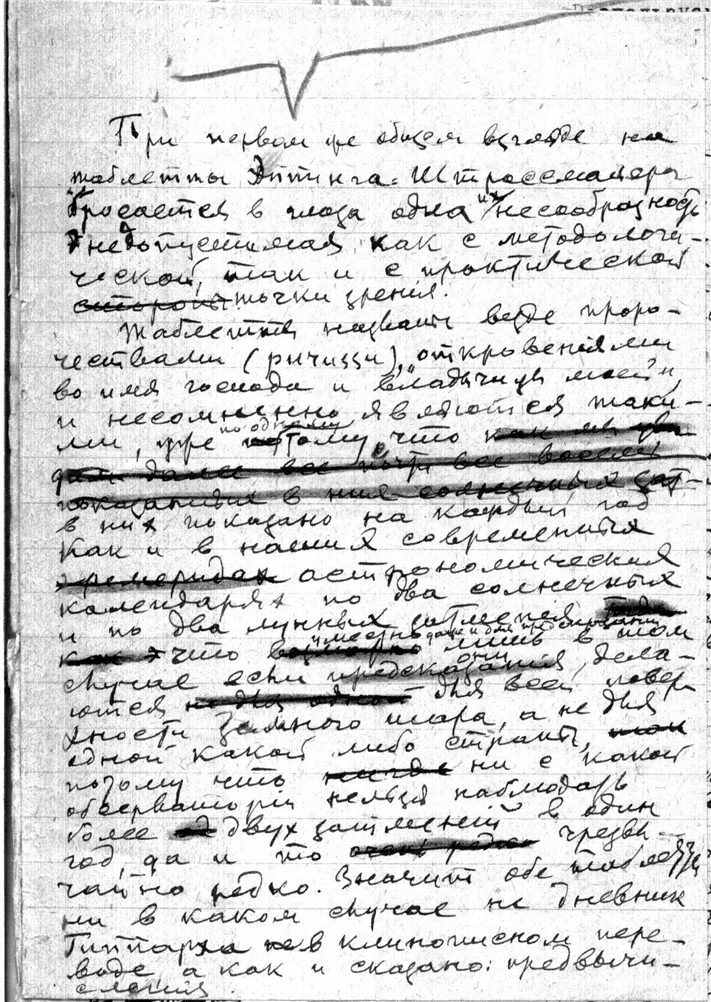 При первом же общем взгляде на
таблетты Эппинга-Штрассмайера
бросается в глаза одна их несообразность
недопустимая как с методологи-
ческой, так и с практической
точки зрения.
Таблетты названы везде проро-
чествами (ричицци), откровениями
во имя господа и "владычицы моей",
и несомненно являются таки-
ми, уже по одному тому, что
в них показано на каждый год
как и в наших современных
астрономических
календарях по два солнечных
и по два лунных затмения
что уместно даже и для лишь в том
случае если предсказания, они дела-
ются для всей повер-
хности земного шара, а не для
одной какой либо страны,
потому что ни с какой
обсерватории нельзя наблюдать
более двух затмений в один
год, да и то чрезвы-
чайно редко. Значит обе таблетты
ни в каком случае не дневник
Гиппарха в клинописном пере-
воде, а как и сказано: предвычи-
сления.